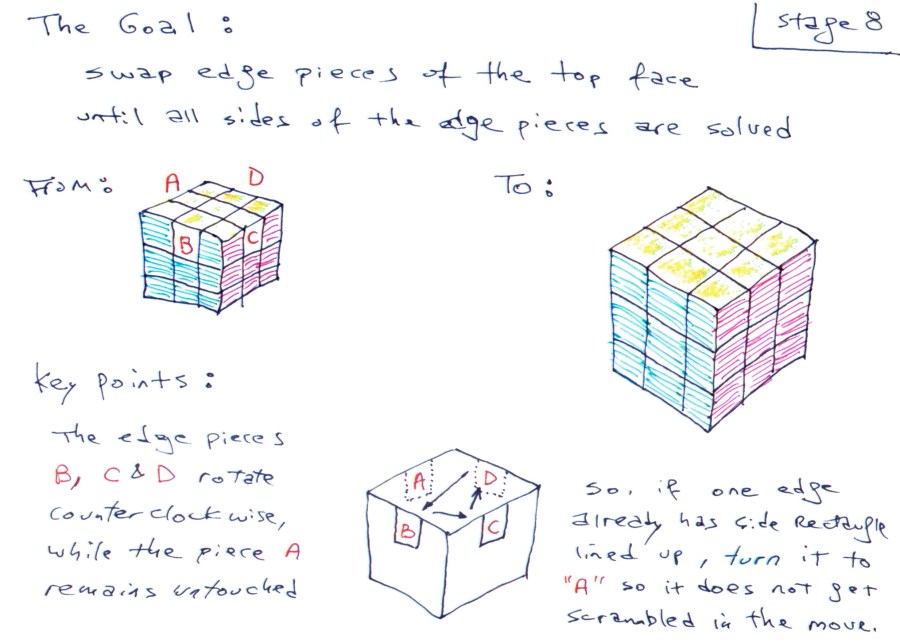 The Goal:
stage 8
swap edge pieces of the top face
until all sides of the edge pieces are solved
From:
A
D
B
C
To:
Key points:
The edge pieces
B, C & D rotate
counterclockwise,
while the piece A
remains untouched
A
D
B
C
So, if one edge
already has side Rectangle
lined up, turn it to
"A" so it does not get
scrambled in the move.